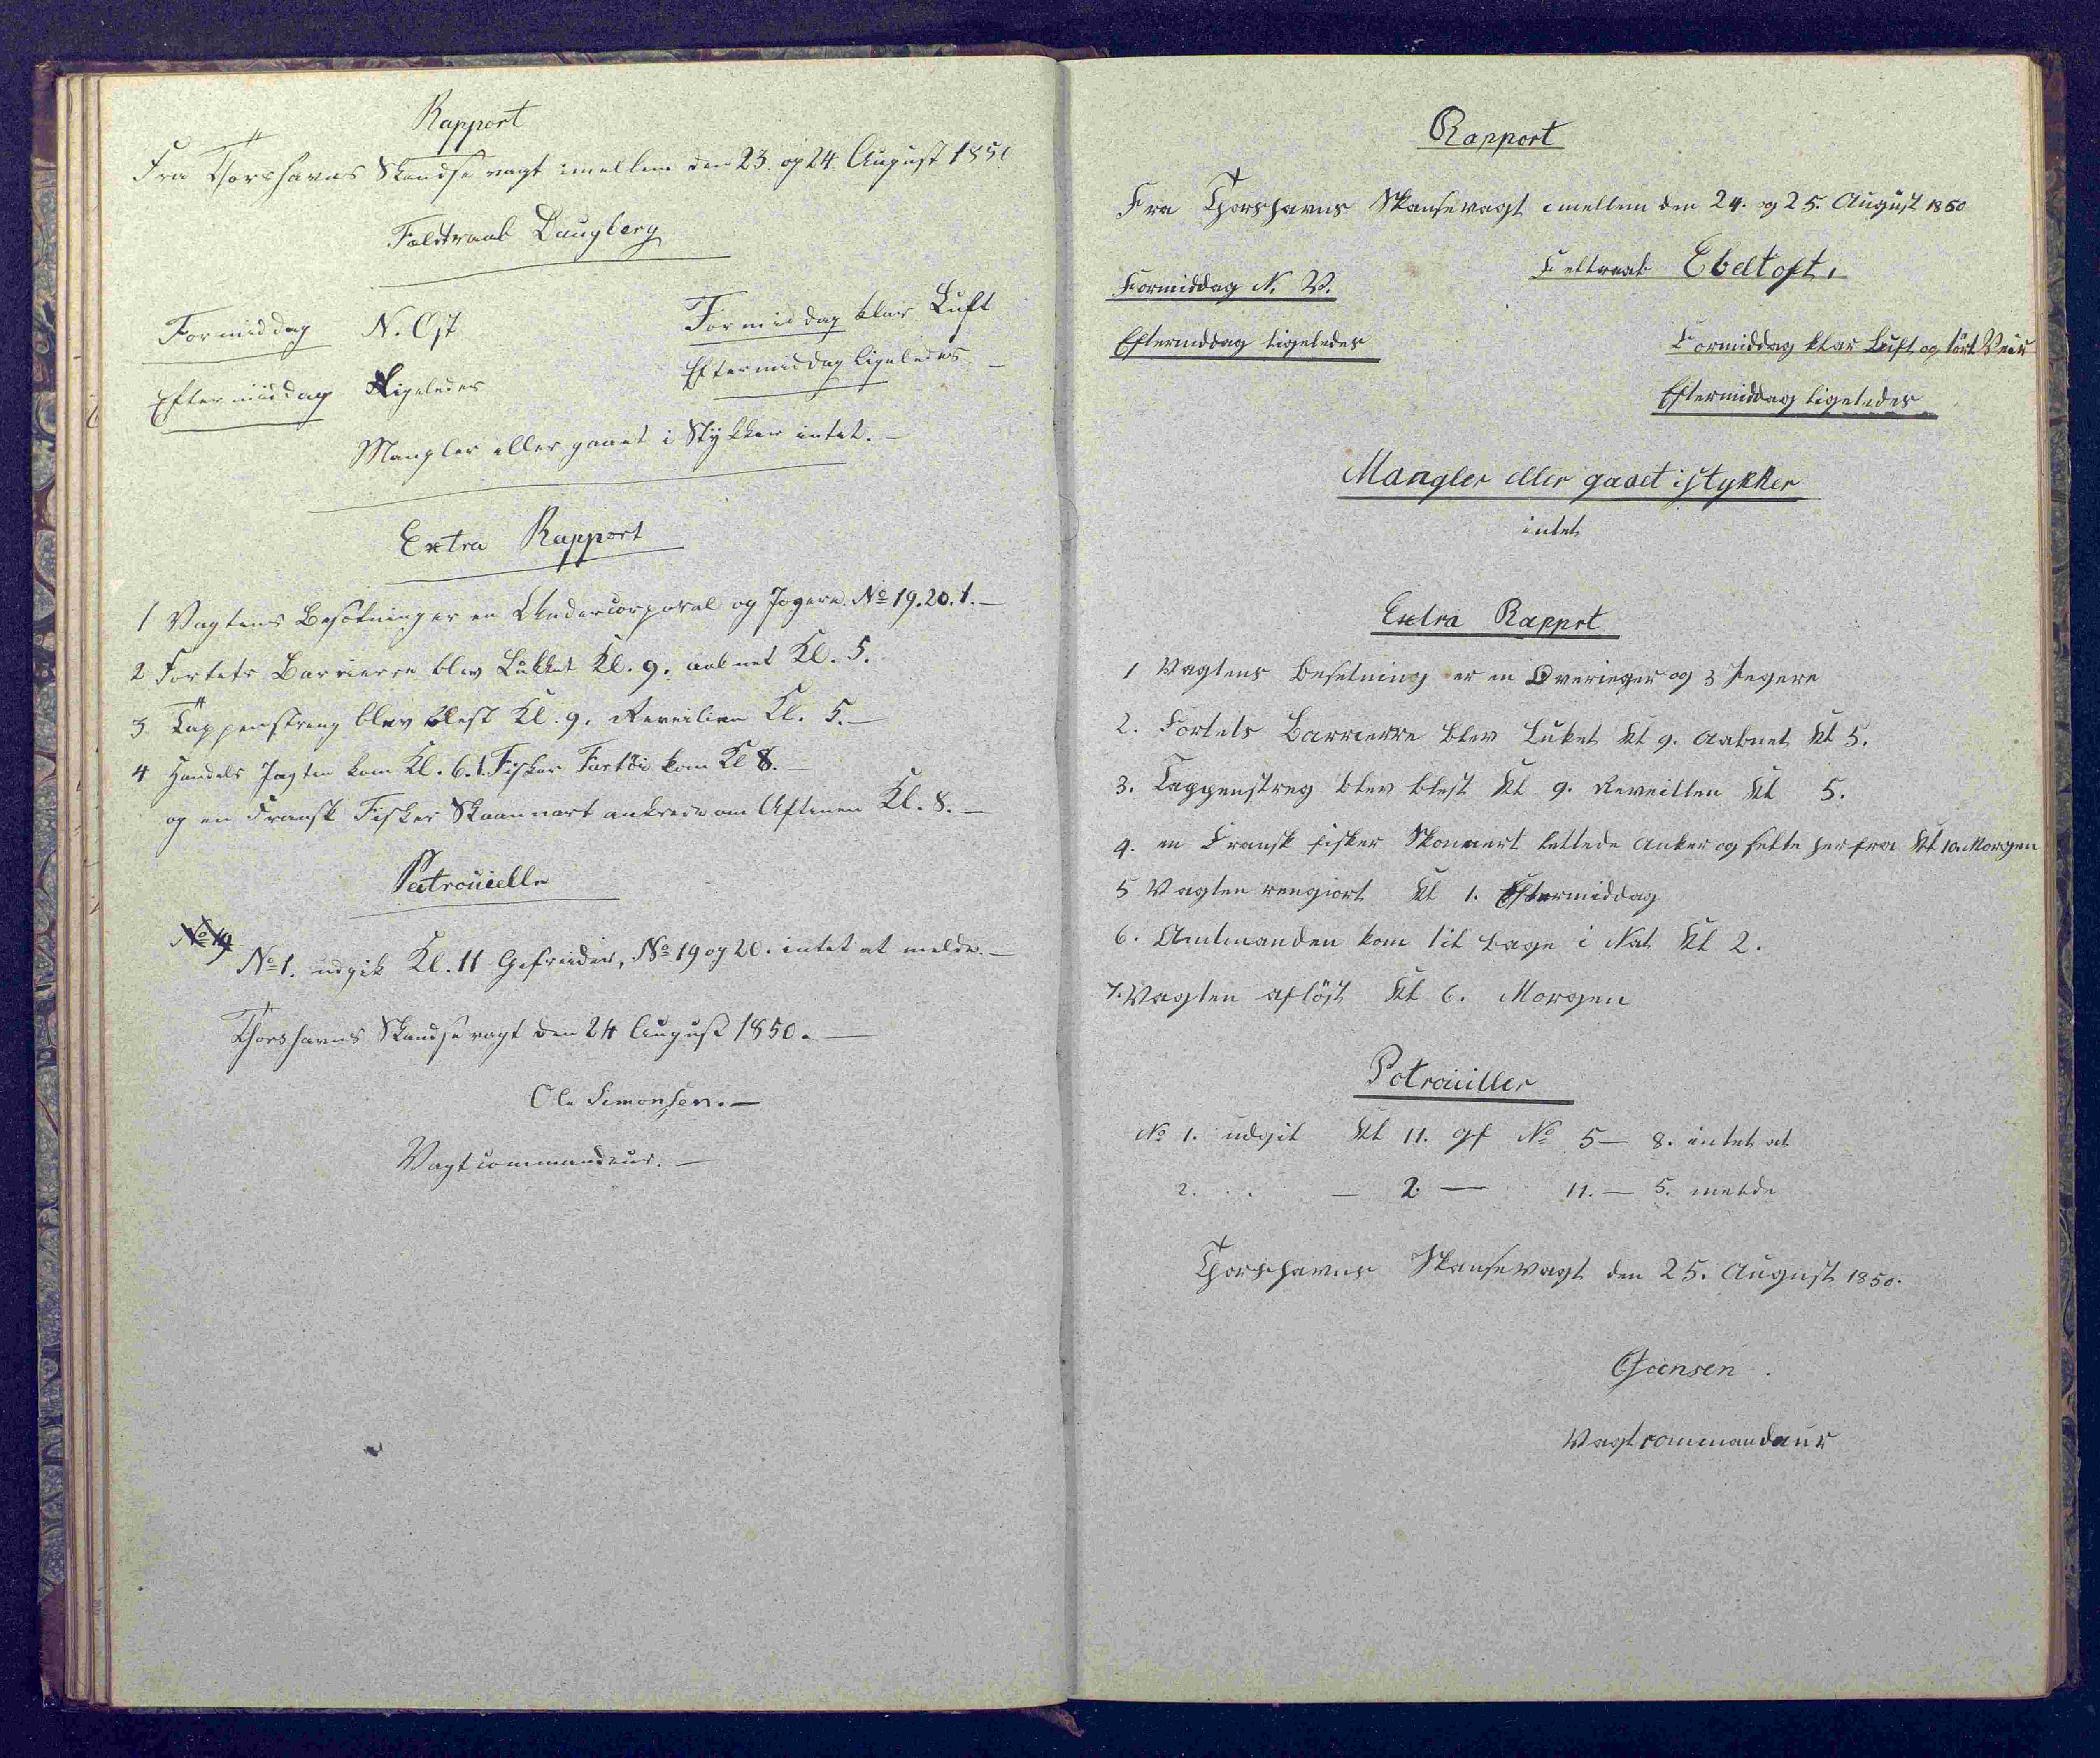 Rapport
Fra Thorshavns Skandse vagt imellem den 23. og 24. August 1850
Feldtraab Daugberg
Formiddag N. Ost Formiddag klar Luft
Eftermiddag Ligeledes Eftermiddag ligeledes
Mangler eller gaaet i Stykker intet. —
Extra Rapport
1 Vagtens Besetning er en Undercorporal og Jegere. No 19. 20. 1. —
2 Fortets Barrieren blev Lukket Kl. 9. aabnet Kl. 5.
3 Tappenstreng blev blest Kl. 9. Reveilien Kl. 5. —
4 Handels Jagten kom Kl. 6. 1. Fisker Fartöi kom Kl 8. —
og en Fransk Fisker Skaannart ankrede om Aftenen Kl. 8. —
Patrouielle
No 19
No 1. udgik Kl. 11 Gefreider, No 19 og 20. intet at melde. —
Thorshavns Skandse vagt den 24 August 1850. —
Ole Simonsen. —
Vagtcommandeur. —
Rapport
Fra Thorshavns Skansevagt imellem den 24. og 25. August 1850
Feltraab Ebeltoft.
Formiddag N. V.
Eftermiddag ligeledes
Formiddag klar Luft og tört Veir
Eftermiddag ligeledes
Mangler eller gaaet istykker
intet
Extra Rapprt
1 Vagtens besetning er en Overieger og 3 Jegere
2. Fortets Barrierre blev Luket Kl 9. Aabnet Kl 5.
3. Tappenstreg blev blest Kl 9. Reveillen Kl 5.
4. en Fransk fisker Skonnert lettede Anker og sette her fra Kl 10. Morgen
5 Vagten rengiort Kl 1. Eftermiddag
6. Amtmanden kom til bage i Nat Kl 2.
7. Vagten aflöst Kl 6. Morgen
Patrouiller
No 1. udgik Kl 11. gf No 5 — 8. intet at
2. . . — 2. — 11. — 5. melde
Thorshavns Skansevagt den 25. August 1850.
Vagtcommandeur